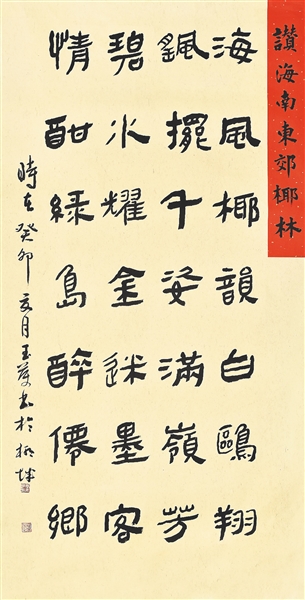 讚海南東郊椰林
海風椰韻白鷗翔
颻擺千姿滿嶺芳
碧水耀金迷墨客
情酣綠島醉僑鄉
時在癸卯亥月玉書於